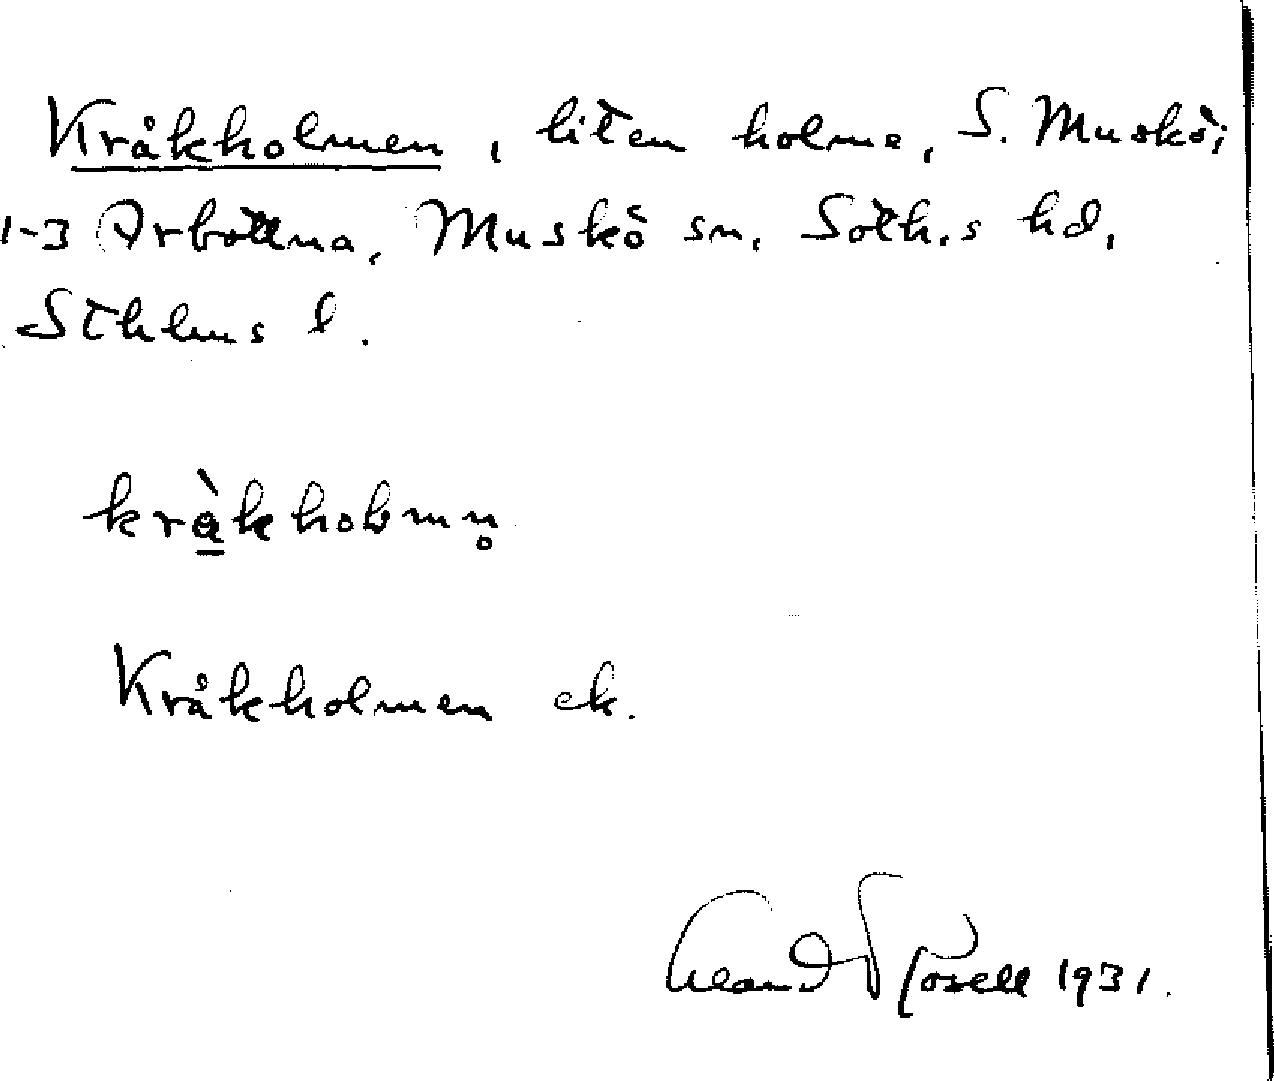 Kråkholmen, liten holme, S. Muskö;
1-3 Arbottna, Muskö sn, Soth.s hd,
Sthlms l.
krå̀kholmn̥
Kråkholmen ek.
1931.